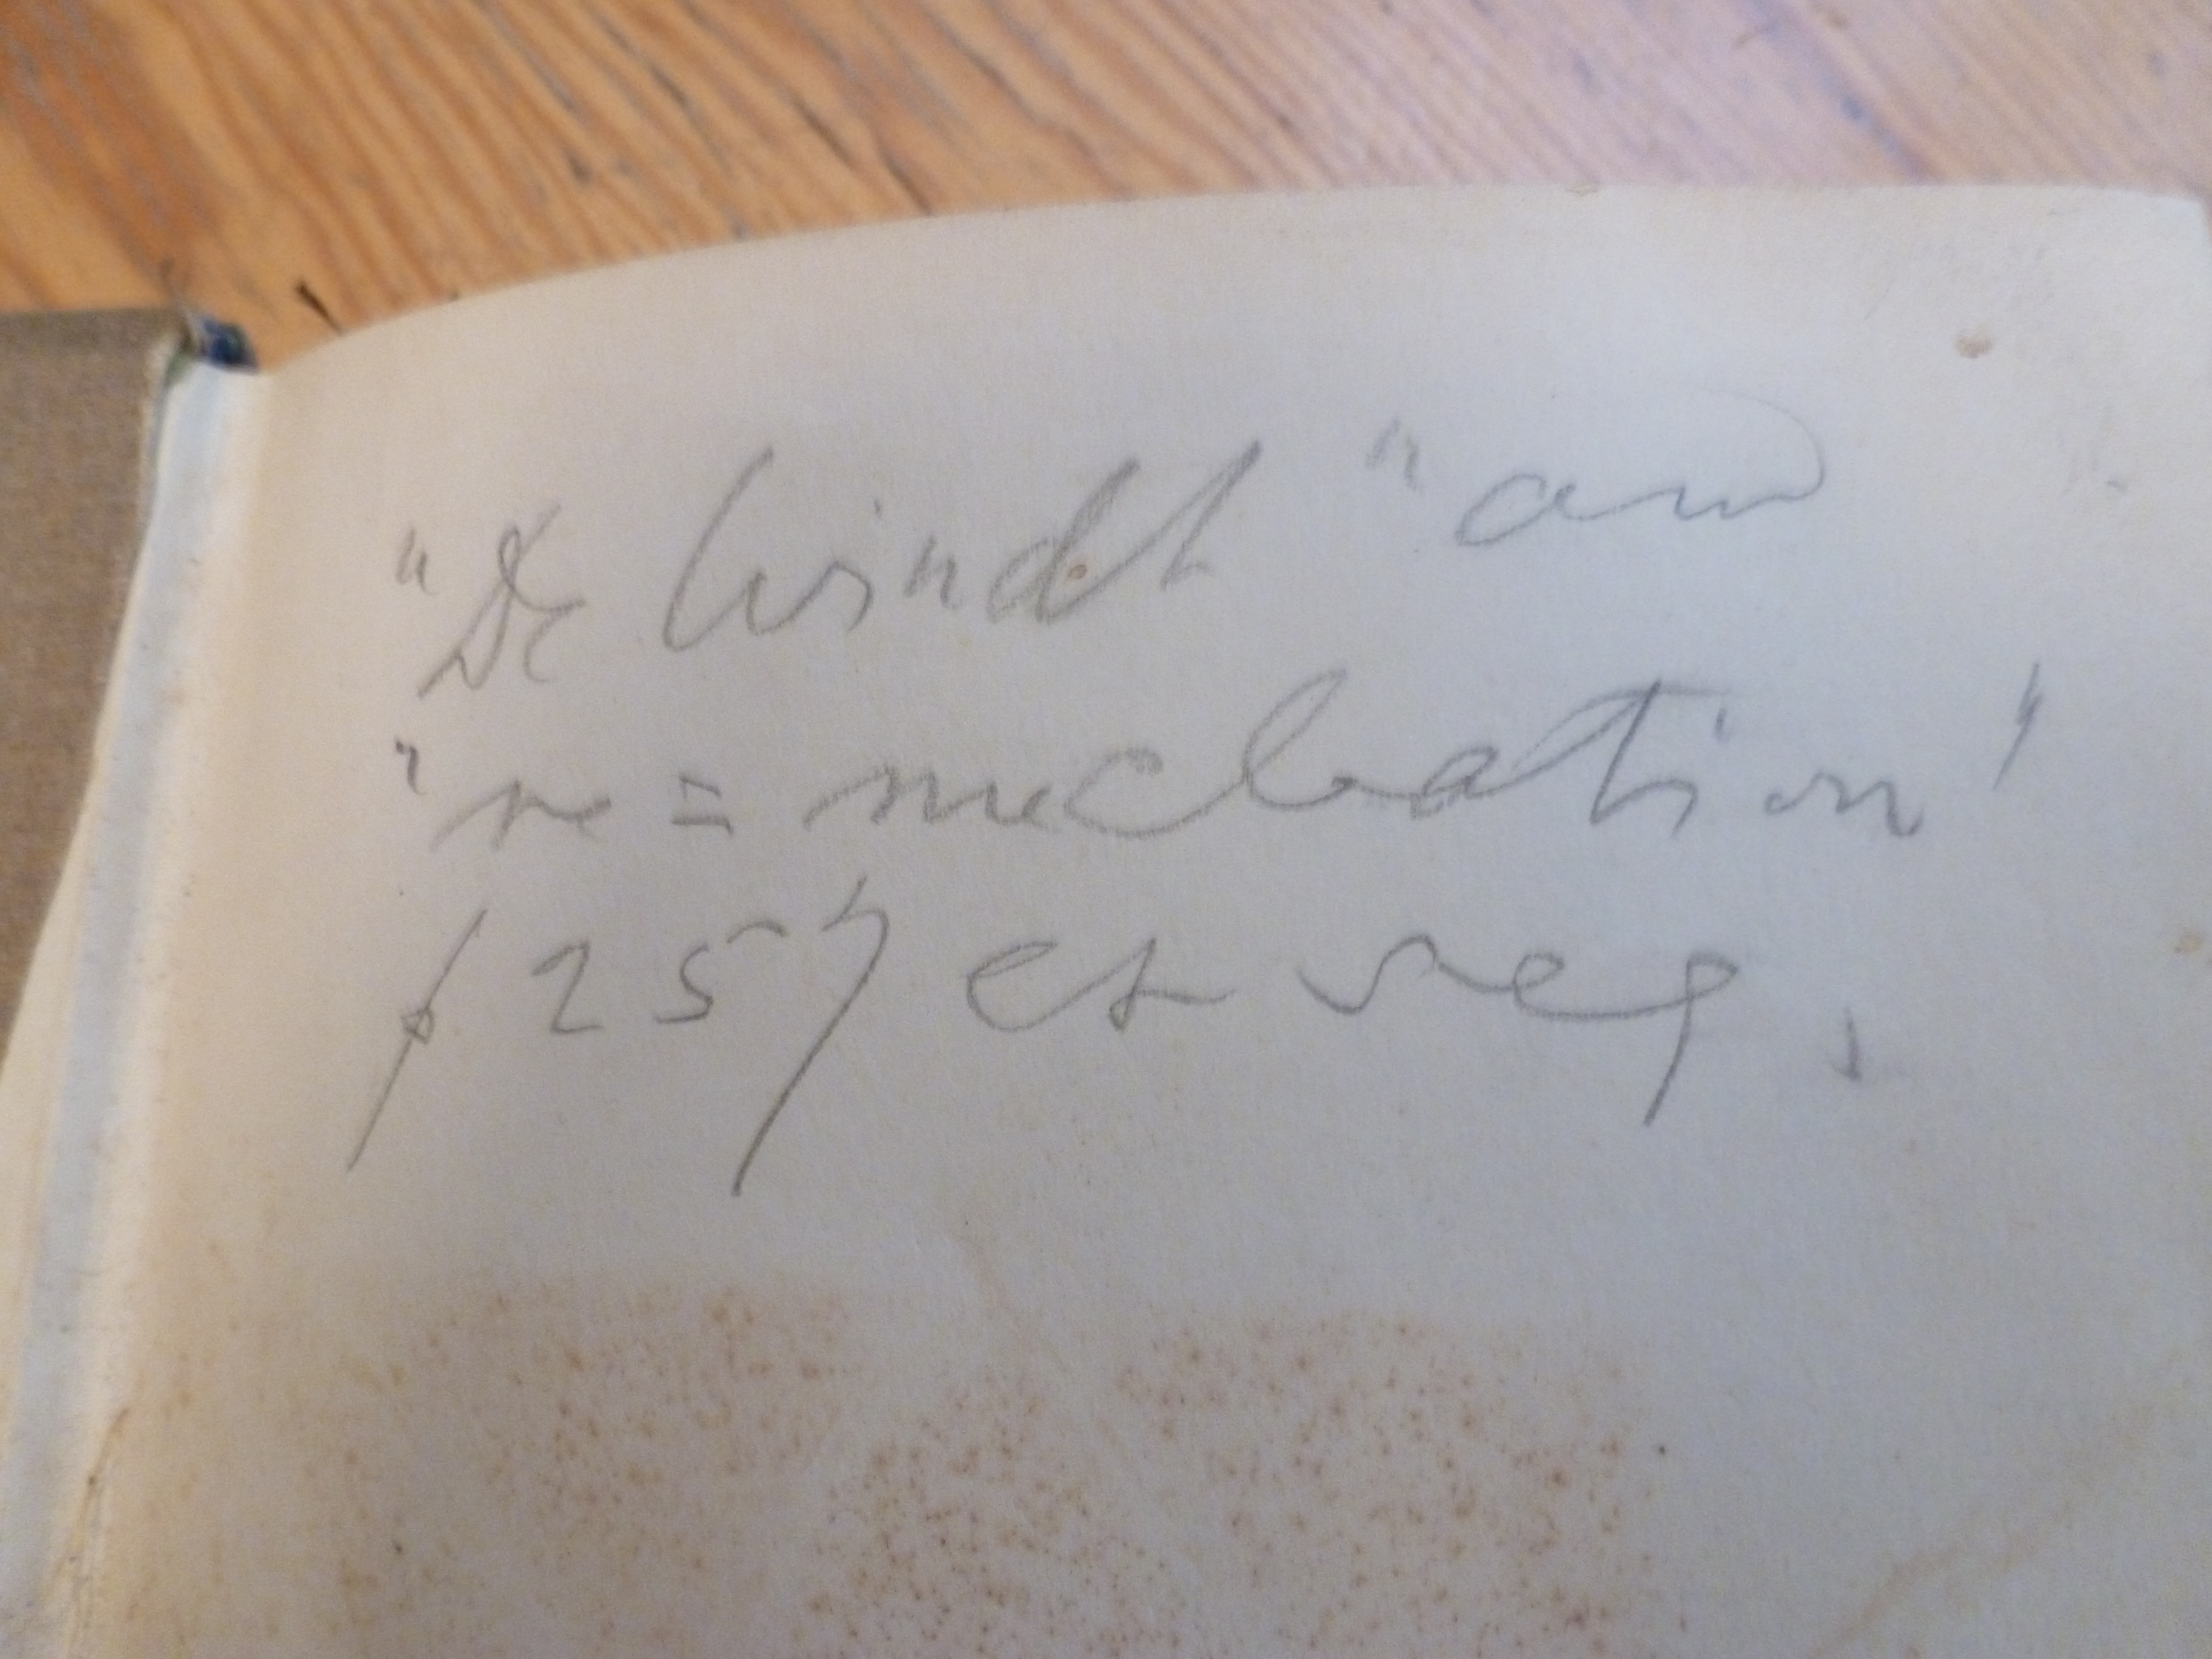 "De Windt" and
"re = nucleation"
p 257 et seq.